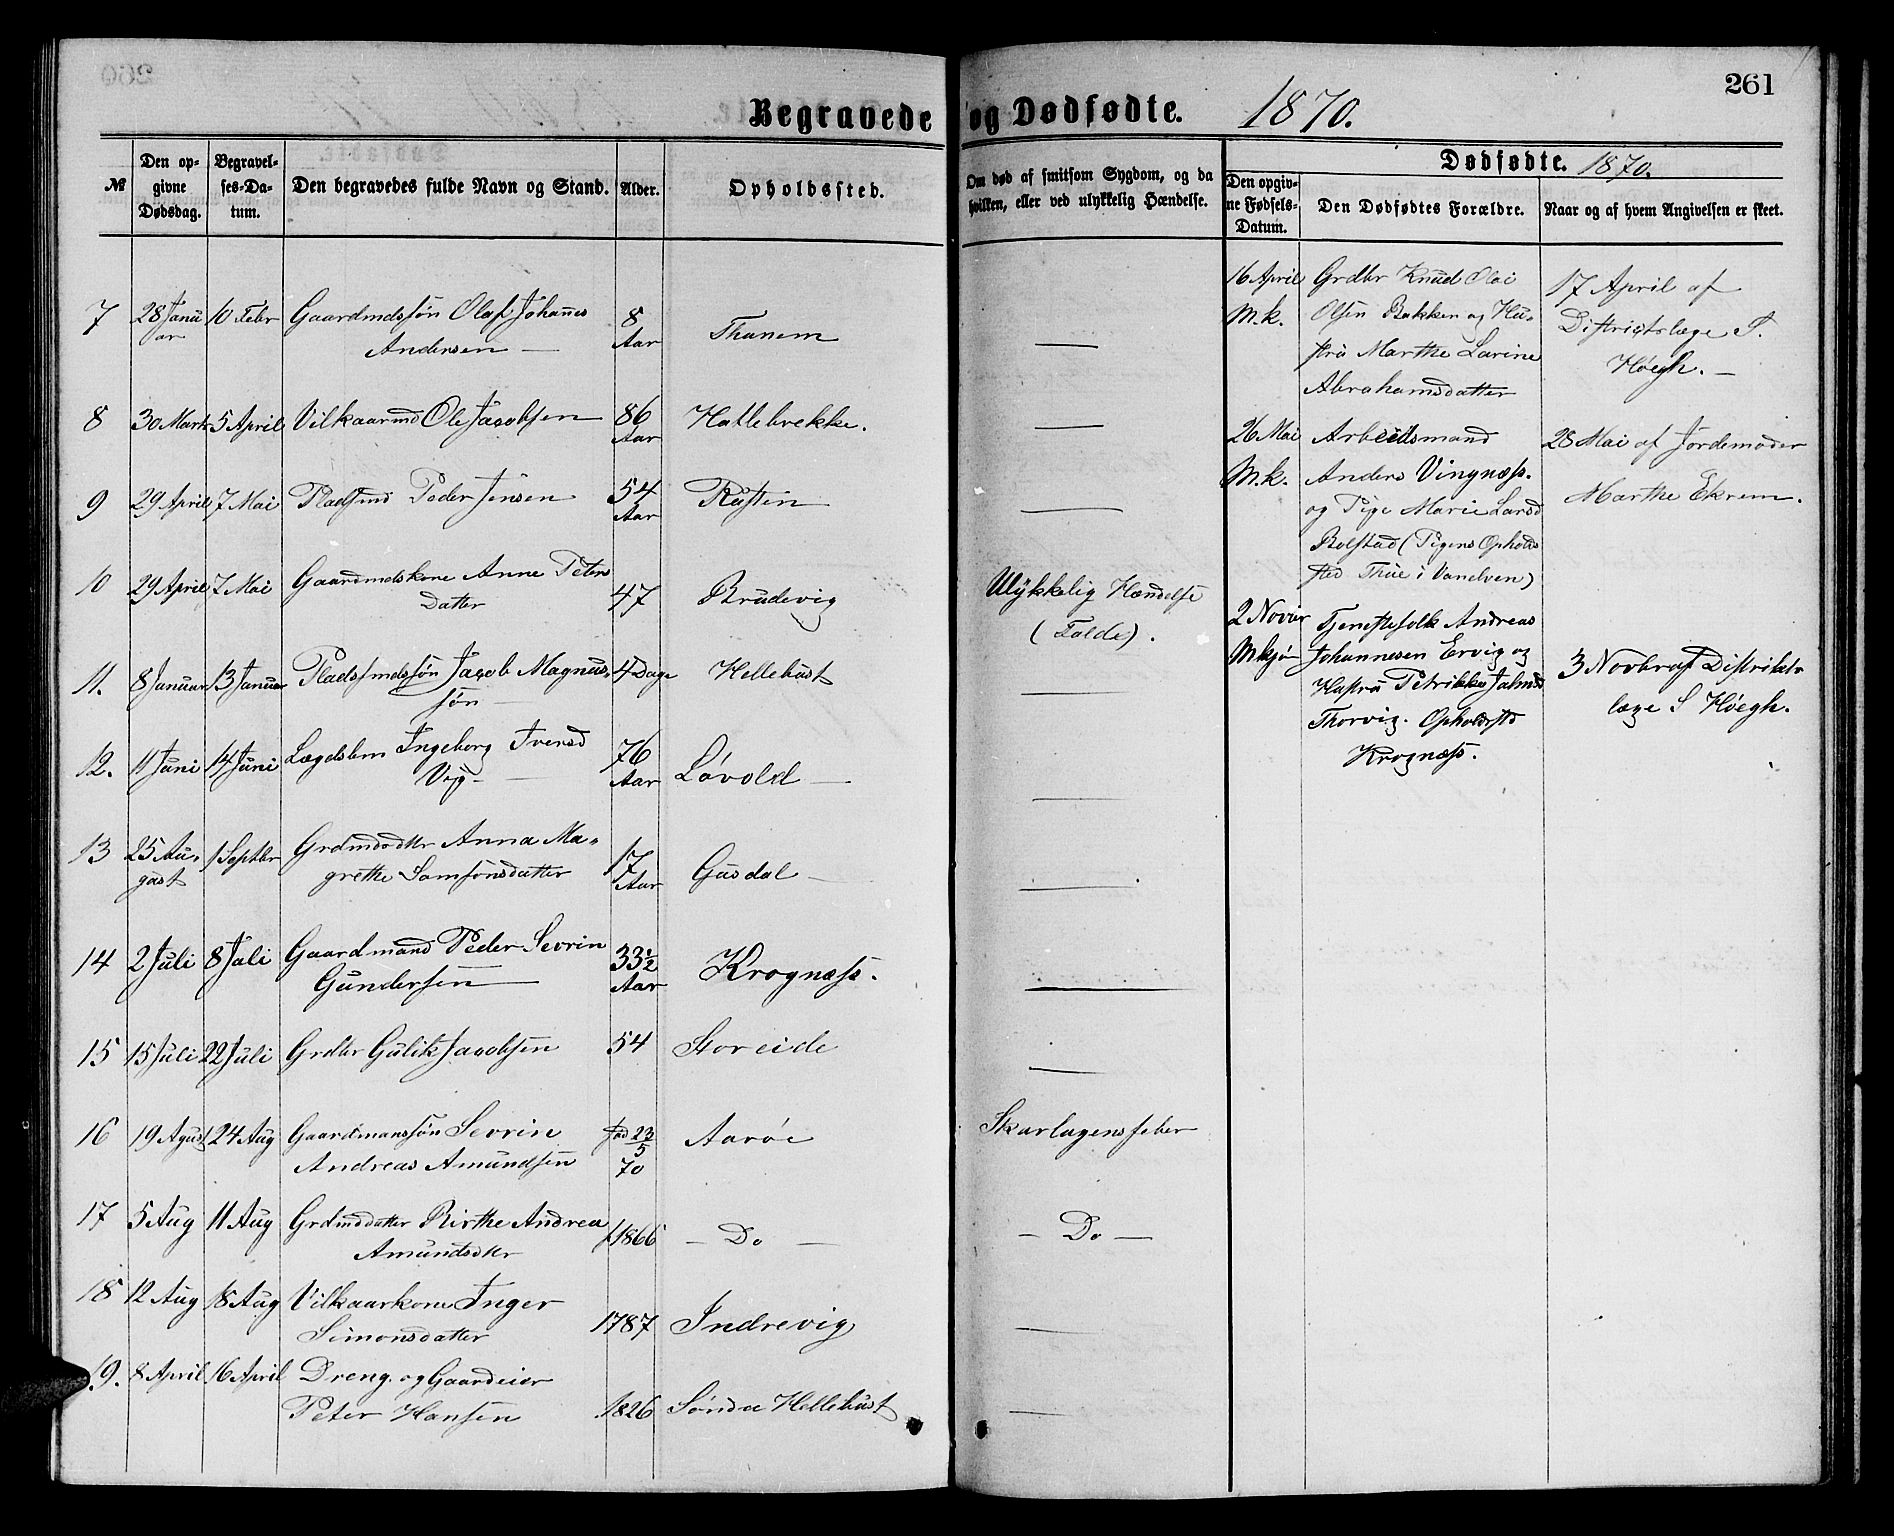 Begravede og Dødfødte. 1870.
261
№
Den opgivne Dødsdag.
Begravelses-Datum.
Den begravedes fulde Navn og Stand.
Alder.
Opholdssted.
Om død af smitsom Sygdom, og da hvilken, eller ved ulykkelig Hændelse.
Dødfødte. 1870.
Den opgivne Fødsels-Datum.
Den Dødfødtes Forældre.
Naar og af hvem Angivelsen er skeet.
7 28 Januar 10 Febr Gaardmdssøn Olaf Johannes
Andersen — 8 Aar Thanem —
8 30 Marts 5 April Vilkaarmd Ole Jacobsen 86 Aar Hatlebrekke. —
9 29 April 7 Mai Pladsmd Peder Jensen 54 Aar Rusten —
10 29 April 7 Mai Gaardmdskone Anne Peters
Datter 47 Brudevig Ulykkelig Hændelse
(Folde).
11. 8 Januar 13 Januar Pladsmdssøn Jacob Magnus-
søn — 4 Dage Hellehust —
12. 11 Juni 14 Juni Lægdslem Ingeborg Iversd
Vig — 76 Aar Løvold — —
13 25 August 1 Septbr Grdmdsdtr Anna Ma-
grethe Samsonsdatter 17 Aar Gusdal — —
14 2 Juli 8 Juli Gaardmand Peder Sevrin
Gundersen — 33½ Aar Krognæss. —
15 15 Juli 22 Juli Grdbr Gulik Jacobsen 54 Storeide —
16 19 August 24 Aug Gaardmanssøn Sevrin
Andreas Amundsen Fød 23/5 70 Aarøe Skarlagensfeber
17 5 Aug 11 Aug Grdmddatter Birthe Andrea
Amundsdtr f 1866 — Do — — Do —
18 12 Aug 18 Aug Vilkaarkone Inger
Simonsdatter 1787 Indrevig —
19. 8 April 16 April Dreng og Gaardeier
Peter Hansen 1826 Søndre Hellehust —
16 April
M.k.
Grdbr Knud Olai
Olsen Bakken og Hu-
stru Marthe Larine
Abrahamsdatter
17 April af
Distriktslæge S.
Høegh. —
26 Mai
M.k.
Arbeidsmand
Anders Vingnæss.
og Pige Marie Larsd
Bolstad (Pigens Opholds
sted Thue i Vanelven)
28 Mai af Jordemoder
Marthe Ekrem.
2 Novbr
Mkjøn
Tjenestefolk Andreas
Johannesen Ervig og
Hustru Petrikke Johnsd
Thorvig. Opholdsstd
Krognæss.
3 Novbr af Distrikts
læge S Høegh.